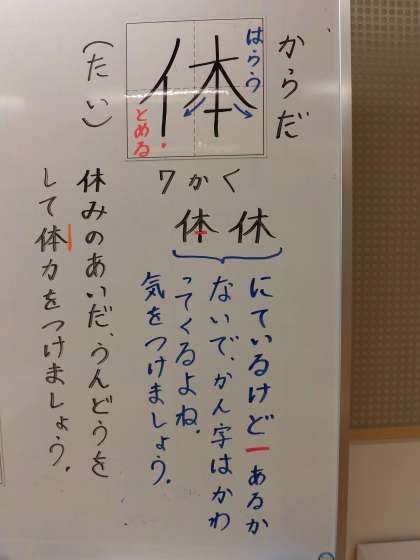 からだ
体
はらう
とめる
(たい)
7かく
休
体
にているけど一あるか
ないで、かん字はかわ
ってくるよね。
気をつけましょう。
休みのあいだ、うんどうを
して体力をつけましょう。